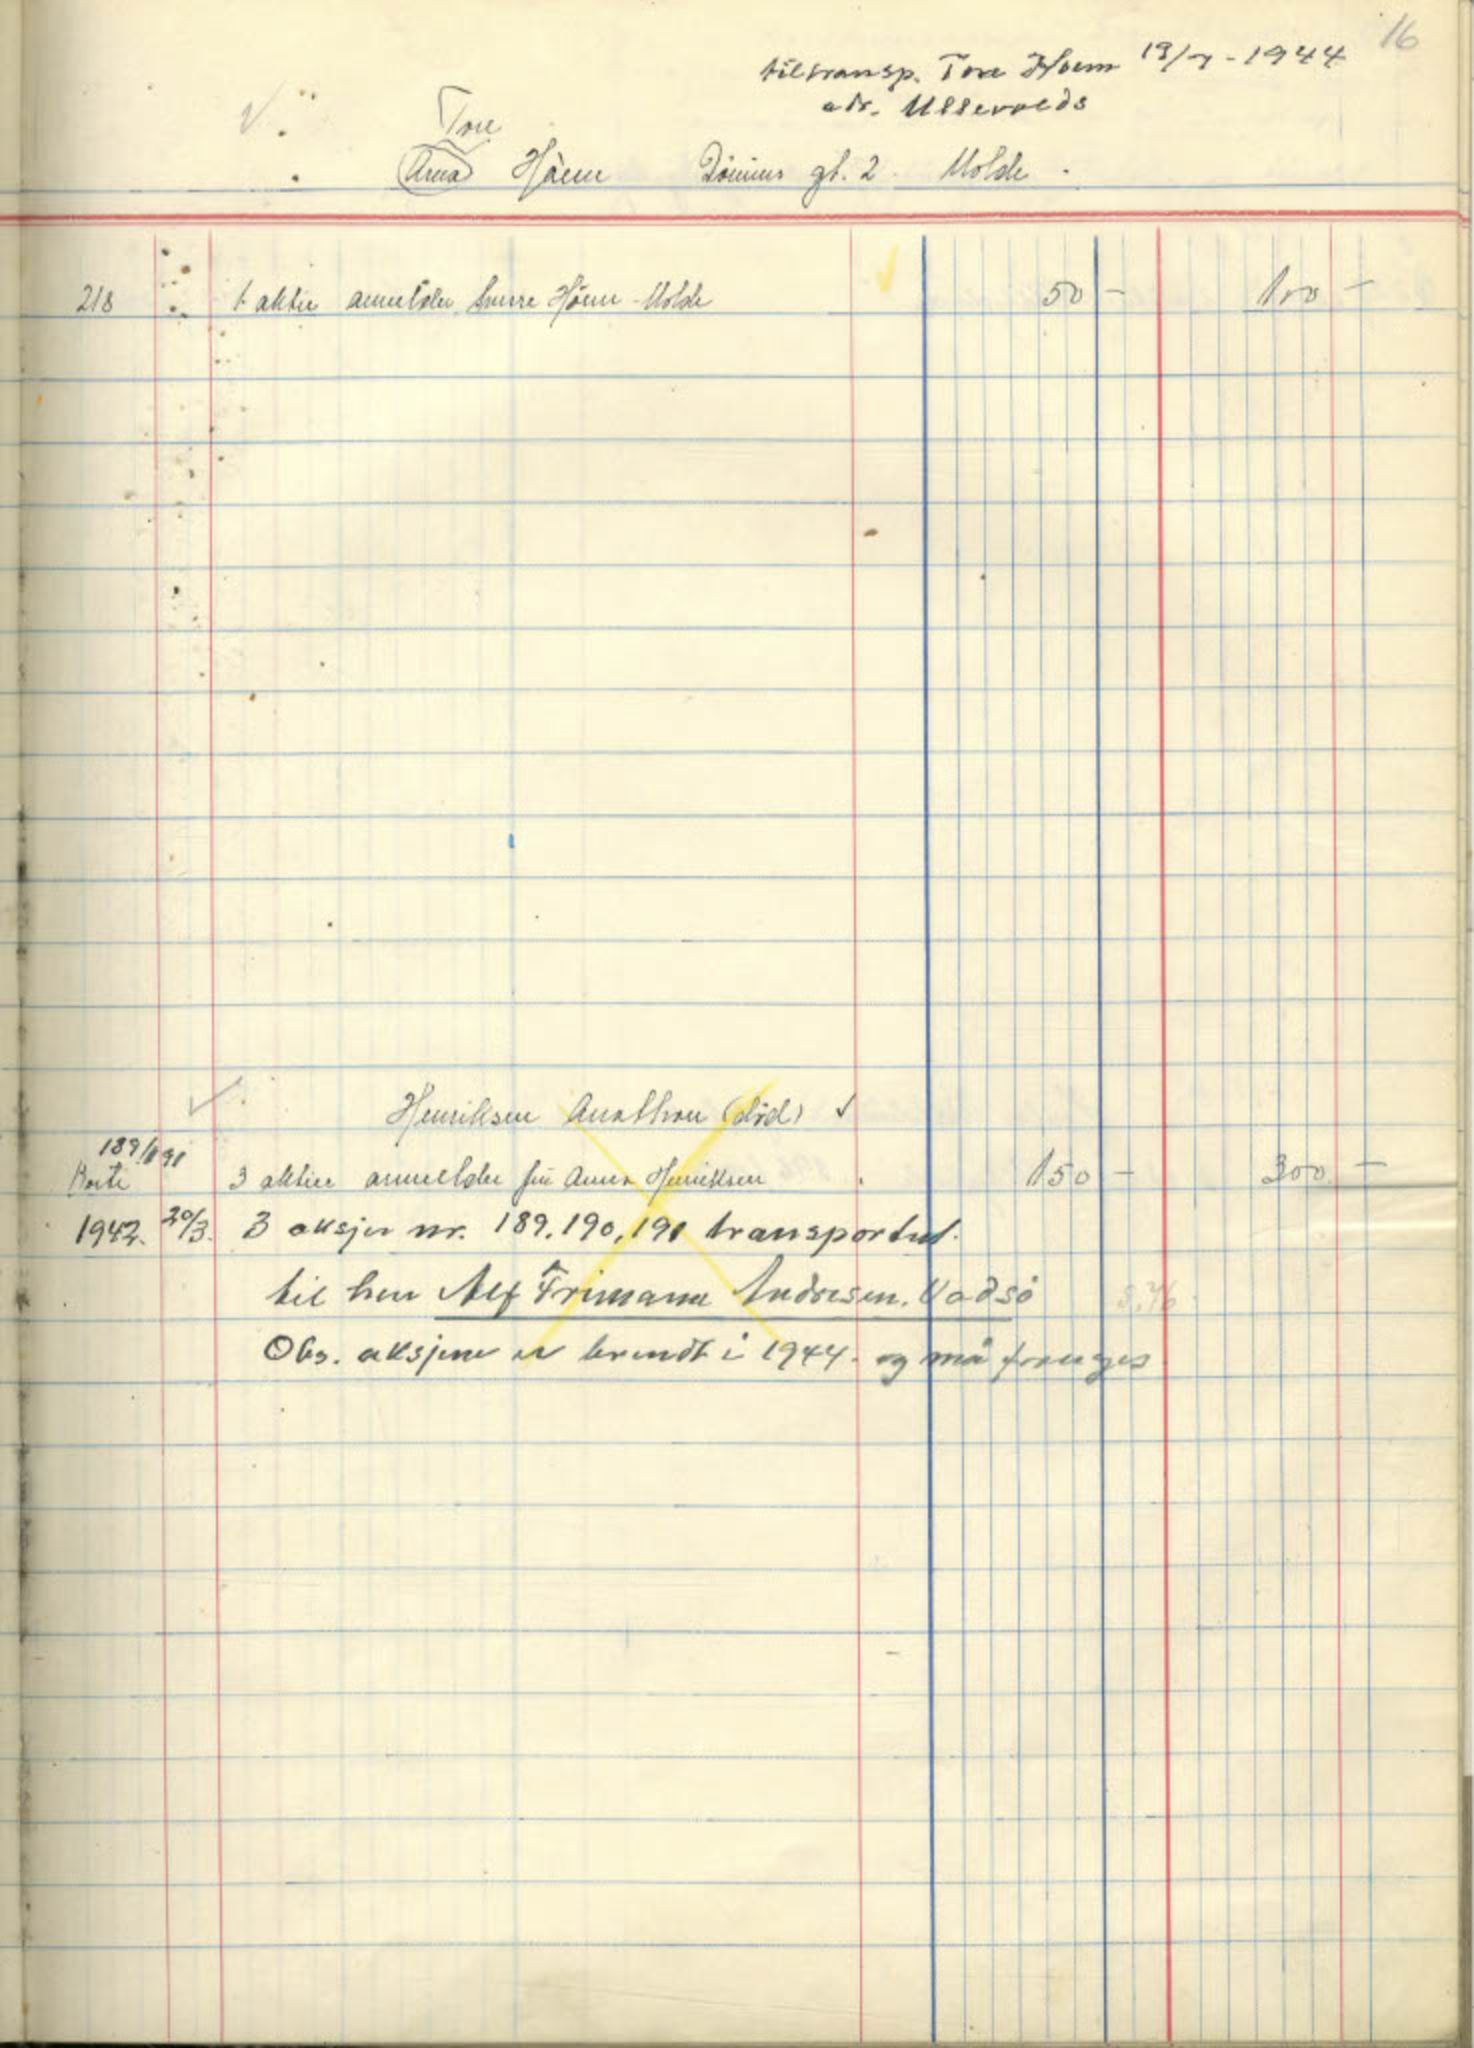 16
tiltransp. Tore Hoem 19/7 - 1944
adr. Ullevolds
Tore
Arna Hoem gt. 2 Molde.
218 1 aktie anmelder Hoem - Molde 50 - 100 -
Henriksen Anathon (död)
189/191
3 aktier anmelder fru Anna Henriksen 150 - 300 -
1942. 20/3. 3 aksjer nr. 189, 190, 191 transportert.
til herr Alf Frimann Andresen. Vadsö
Obs. aksjene er brendt i 1944. og må fornyes